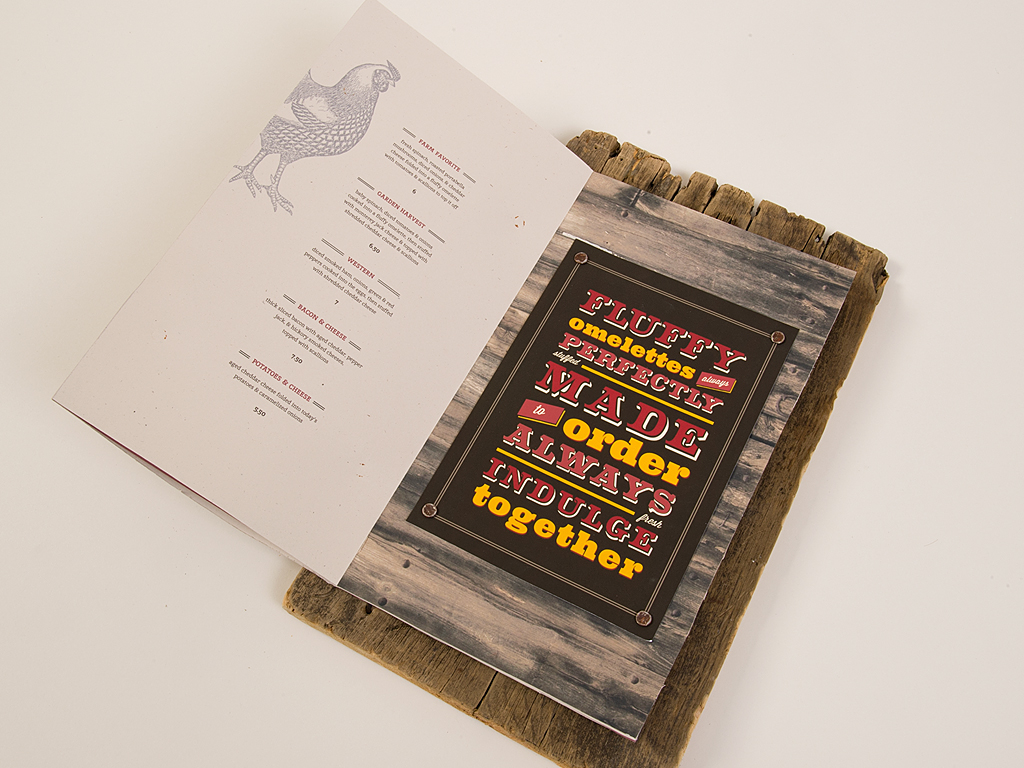 FARM FAVORITE
fresh spinach, roasted portabella
mushrooms, diced onions, & cheddar
cheese folded into a fluffy omelette
with tomatoes & scallions to top it off
6
GARDEN HARVEST
baby spinach, diced tomatoes & onions
cooked into a fluffy omelette, then stuffed
with monterey jack cheese & topped with
shredded cheddar cheese & scallions
6.50
WESTERN
diced smoked ham, onions, green & red
peppers cooked into the eggs, then stuffed
with shredded cheddar cheese
7
BACON & CHEESE
thick sliced bacon with aged cheddar, pepper
jack, & hickory smoked cheeses,
topped with scallions
7.50
POTATOES & CHEESE
aged cheddar cheese folded into today's
potatoes & caramelized onions
5.50
FLUFFY
omelettes always
stuffed PERFECTLY
MADE
to order
ALWAYS
fresh
INDULGE
together